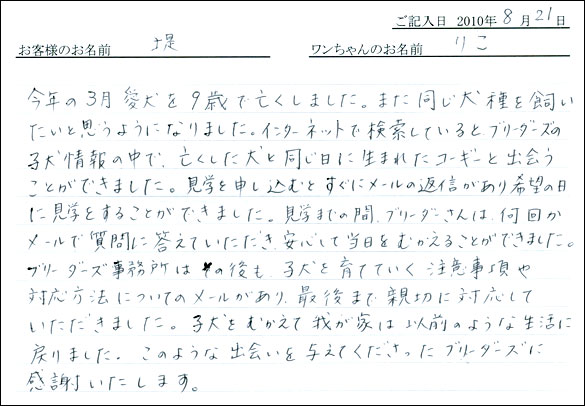 ご記入日 2010年 8 月 21 日
お客様のお名前 堤 ワンちゃんのお名前 りこ
今年の3月愛犬を9歳で亡くしました。また同じ犬種を飼い
たいと思うようになりました。インターネットで検索しているとブリーダーズの
子犬情報の中で、亡くした犬と同じ日に生まれたコーギーと出会う
ことができました。見学を申し込むとすぐにメールの返信があり希望の日
に見学をすることができました。見学までの間、ブリーダーさんは、何回か
メールで質問に答えていただき、安心して当日をむかえることができました。
ブリーダーズ事務所はその後も、子犬を育てていく注意事項や
対応方法についてのメールがあり、最後まで親切に対応して
いただきました。子犬をむかえて我が家は以前のような生活に
戻りました。このような出会いを与えてくださったブリーダーズに
感謝いたします。